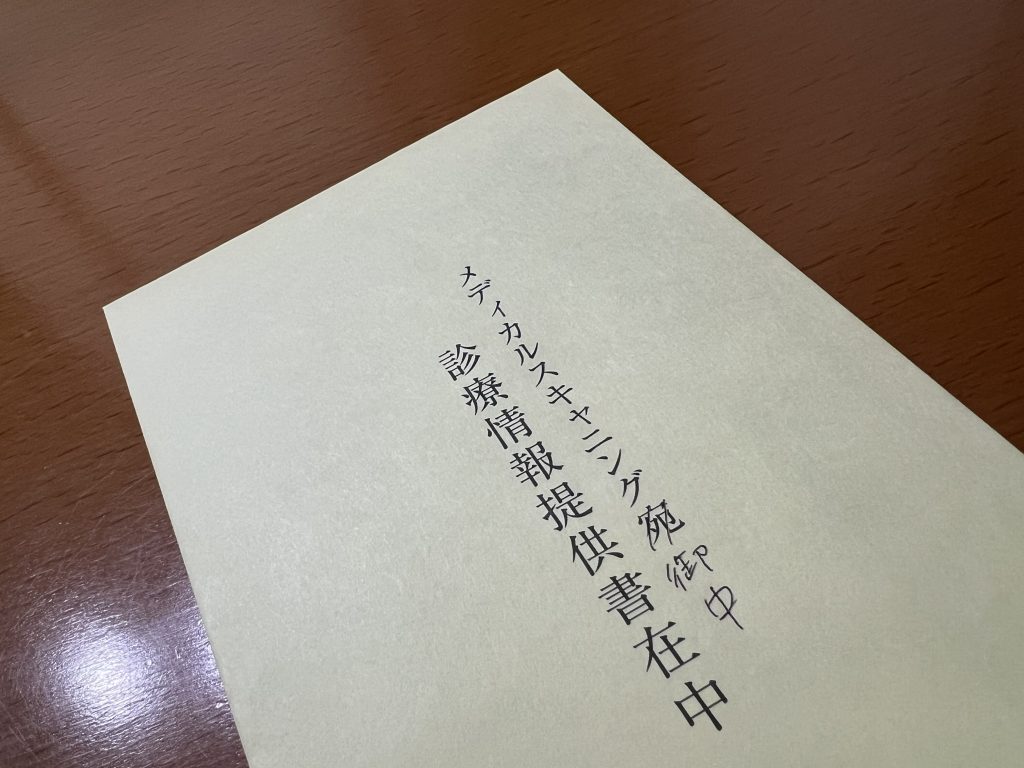 メディカルスキャニング宛御中
診療情報提供書在中